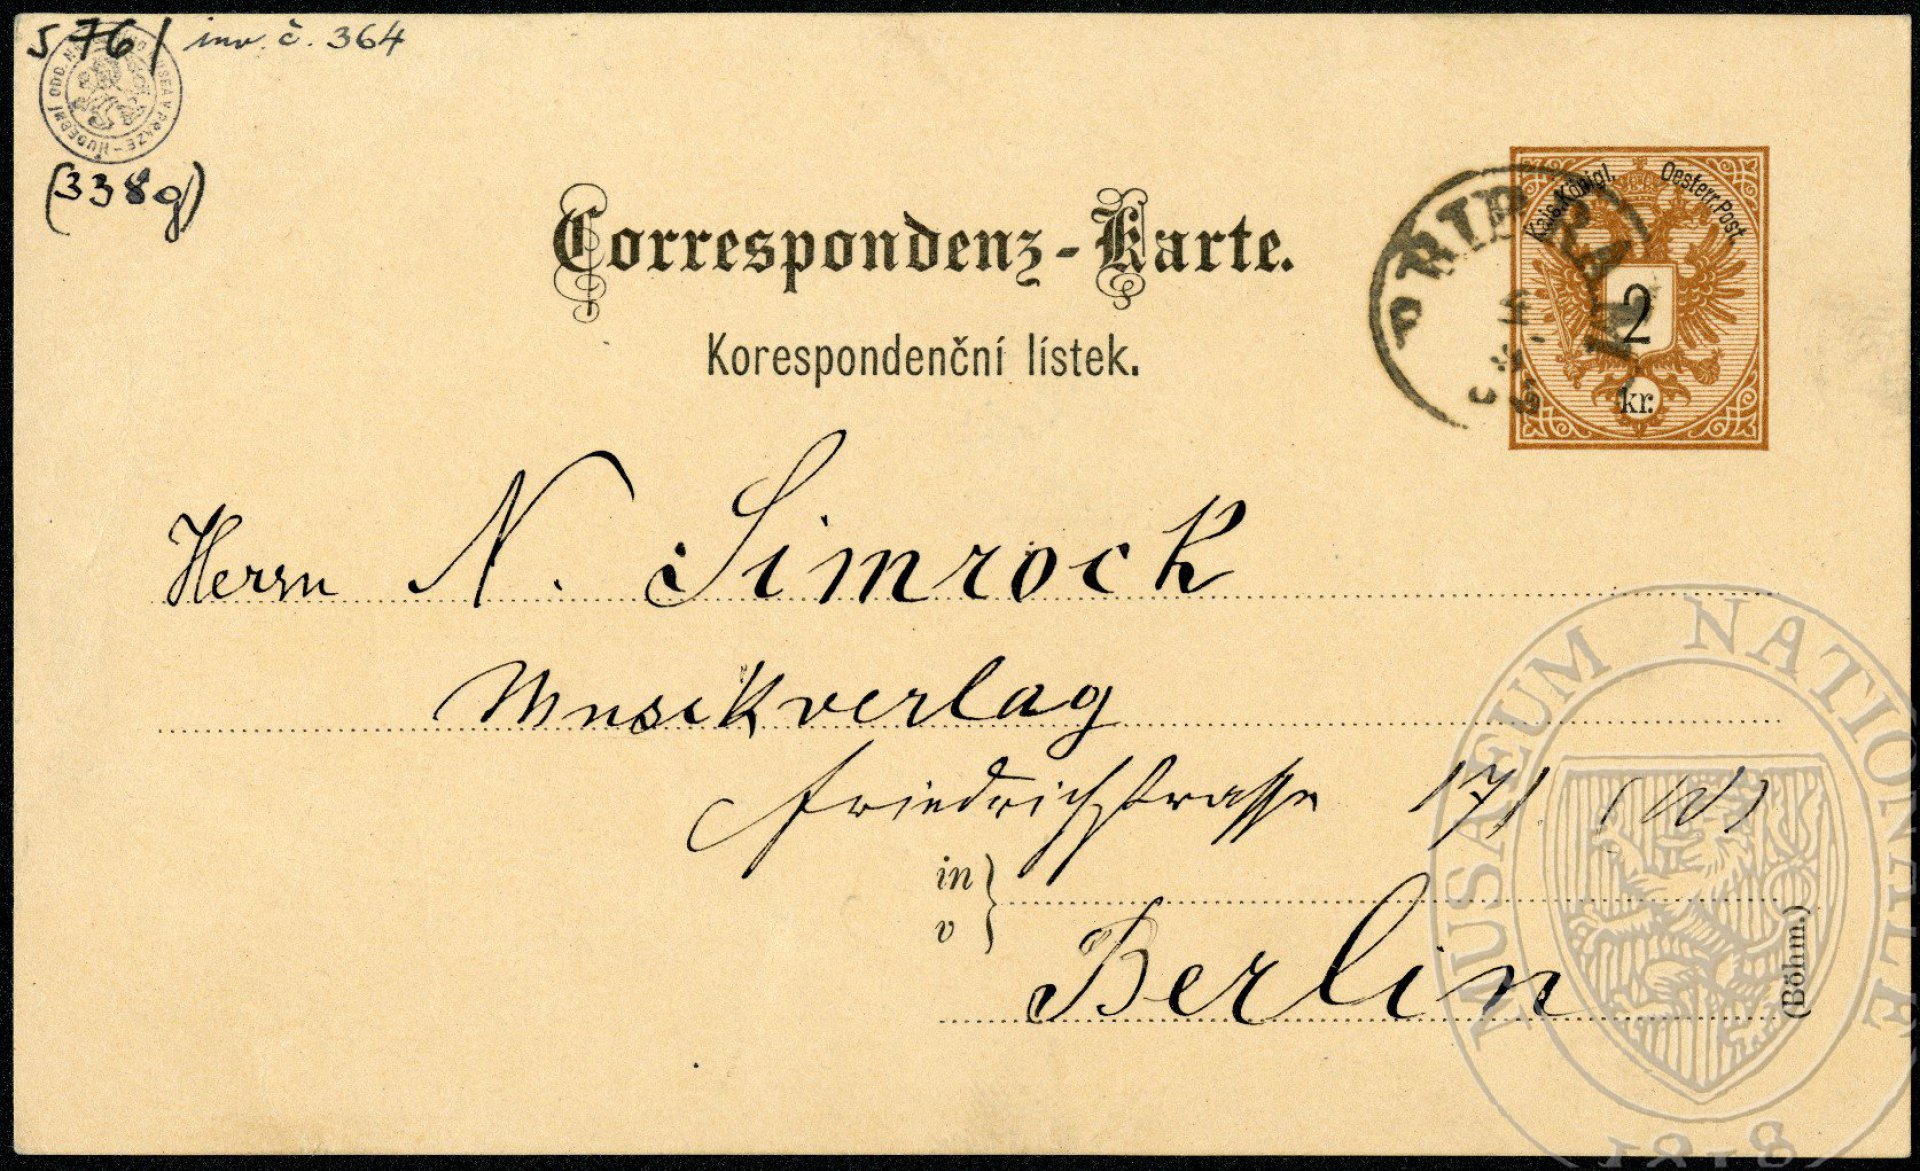 S 76/ inv. č. 364
HUDEBNÍ ODD. MUSEA V PRAZE
(338g)
Correspondenz-Karte.
Korespondenční lístek.
Kais. Königl. Oesterr. Post.
2
kr.
PRIBRAM
Herrn N. Simrock
Musikverlag
Friedrichstrasse 171 (W)
in
v
Berlin
(Böhm.)
MUSAEUM NATIONALE
1818